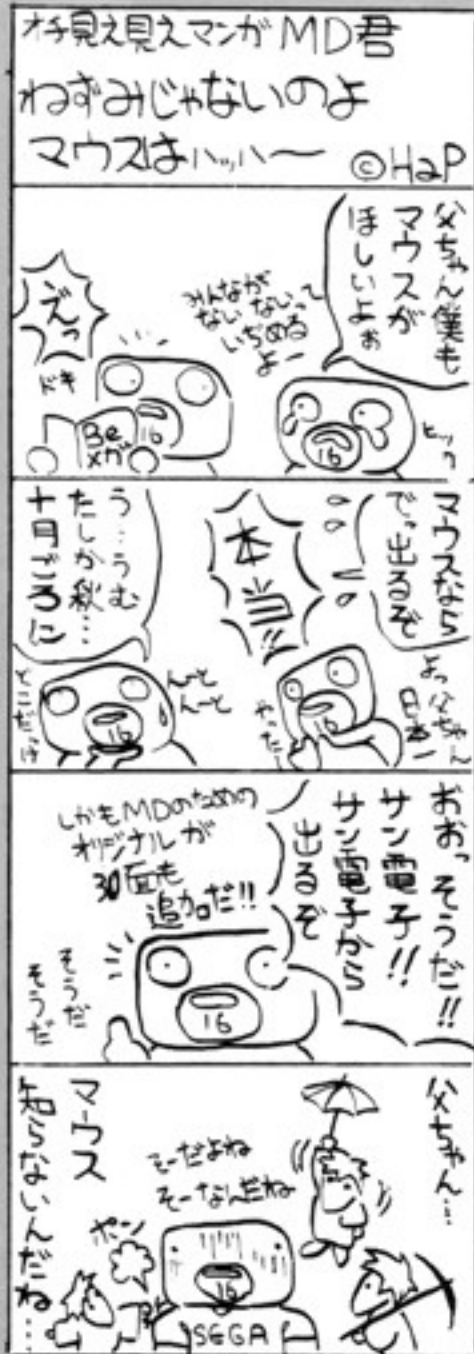 オチ見え見えマンガMD君
ねずみじゃないのよ
マウスはハッハ〜
©HaP
父ちゃん僕も
マウスが
ほしいよぉ
みんなが
ないないって
いぢめる
よー
ヒック
えっ
ドキ
Be
メガ
16
16
マウスなら
でっ出るぞ
よっ父ちゃん
日本一
本当!!
やったー
16
う…うむ
たしか秋…
十月ごろに
んーと
んーと
どこだっけ
16
おおっそうだ!!
サン電子!!
サン電子から
出るぞ
しかもMDのための
オリジナルが
30面も
追加だ!!
そうだ
そうだ
16
父ちゃん…
マウス
知らないんだね…
そーだよね
そーなんだね
ポン
16
SEGA